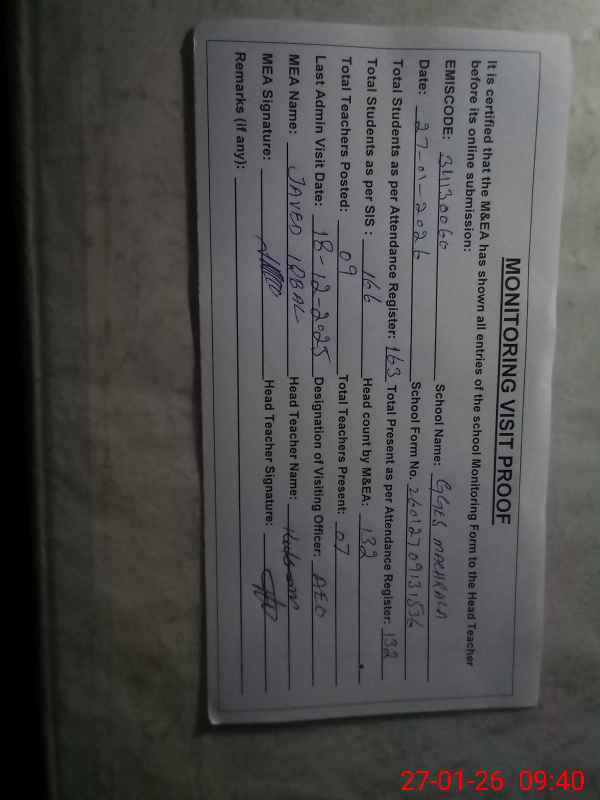 MONITORING VISIT PROOF
It is certified that the M&EA has shown all entries of the school Monitoring Form to the Head Teacher
before its online submission:
EMISCODE: 34130060 School Name: GGES MACHRALA
Date: 27-01-2026 School Form No. 26012709131536
Total Students as per Attendance Register: 163 Total Present as per Attendance Register: 132
Total Students as per SIS : 166 Head count by M&EA: 132
Total Teachers Posted: 09 Total Teachers Present: 07
Last Admin Visit Date: 18-12-2025 Designation of Visiting Officer: AEO
MEA Name: JAVED IQBAL Head Teacher Name:
MEA Signature: Head Teacher Signature:
Remarks (if any):
27-01-26 09:40